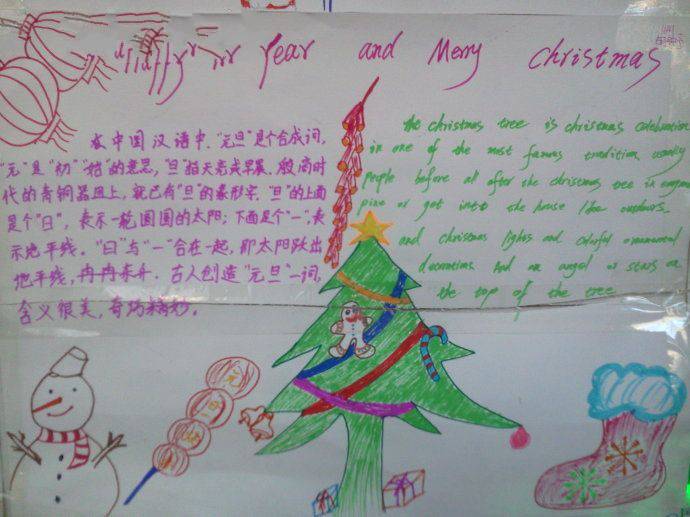 Year and Merry Christmas
在中国汉语中，"元旦"是个合成词，
"元"是"初""始"的意思，"旦"指天亮或早晨。殷商时
代的青铜器皿上，就已有"旦"的象形字。"旦"的上面
是个"日"，表示一轮圆圆的太阳；下面是个"一"，表
示地平线。"日"与"一"合在一起，即太阳跃出
地平线，冉冉东升。古人创造"元旦"一词，
含义很美，奇巧精妙。
the christmas tree is christmas celebrations
in one of the most famous tradition, usually
people before all after the christmas tree in
pine or get into the house like outdoors.
and christmas lights and colorful ornamental
decorations. And an angel or stars on
the top of the tree